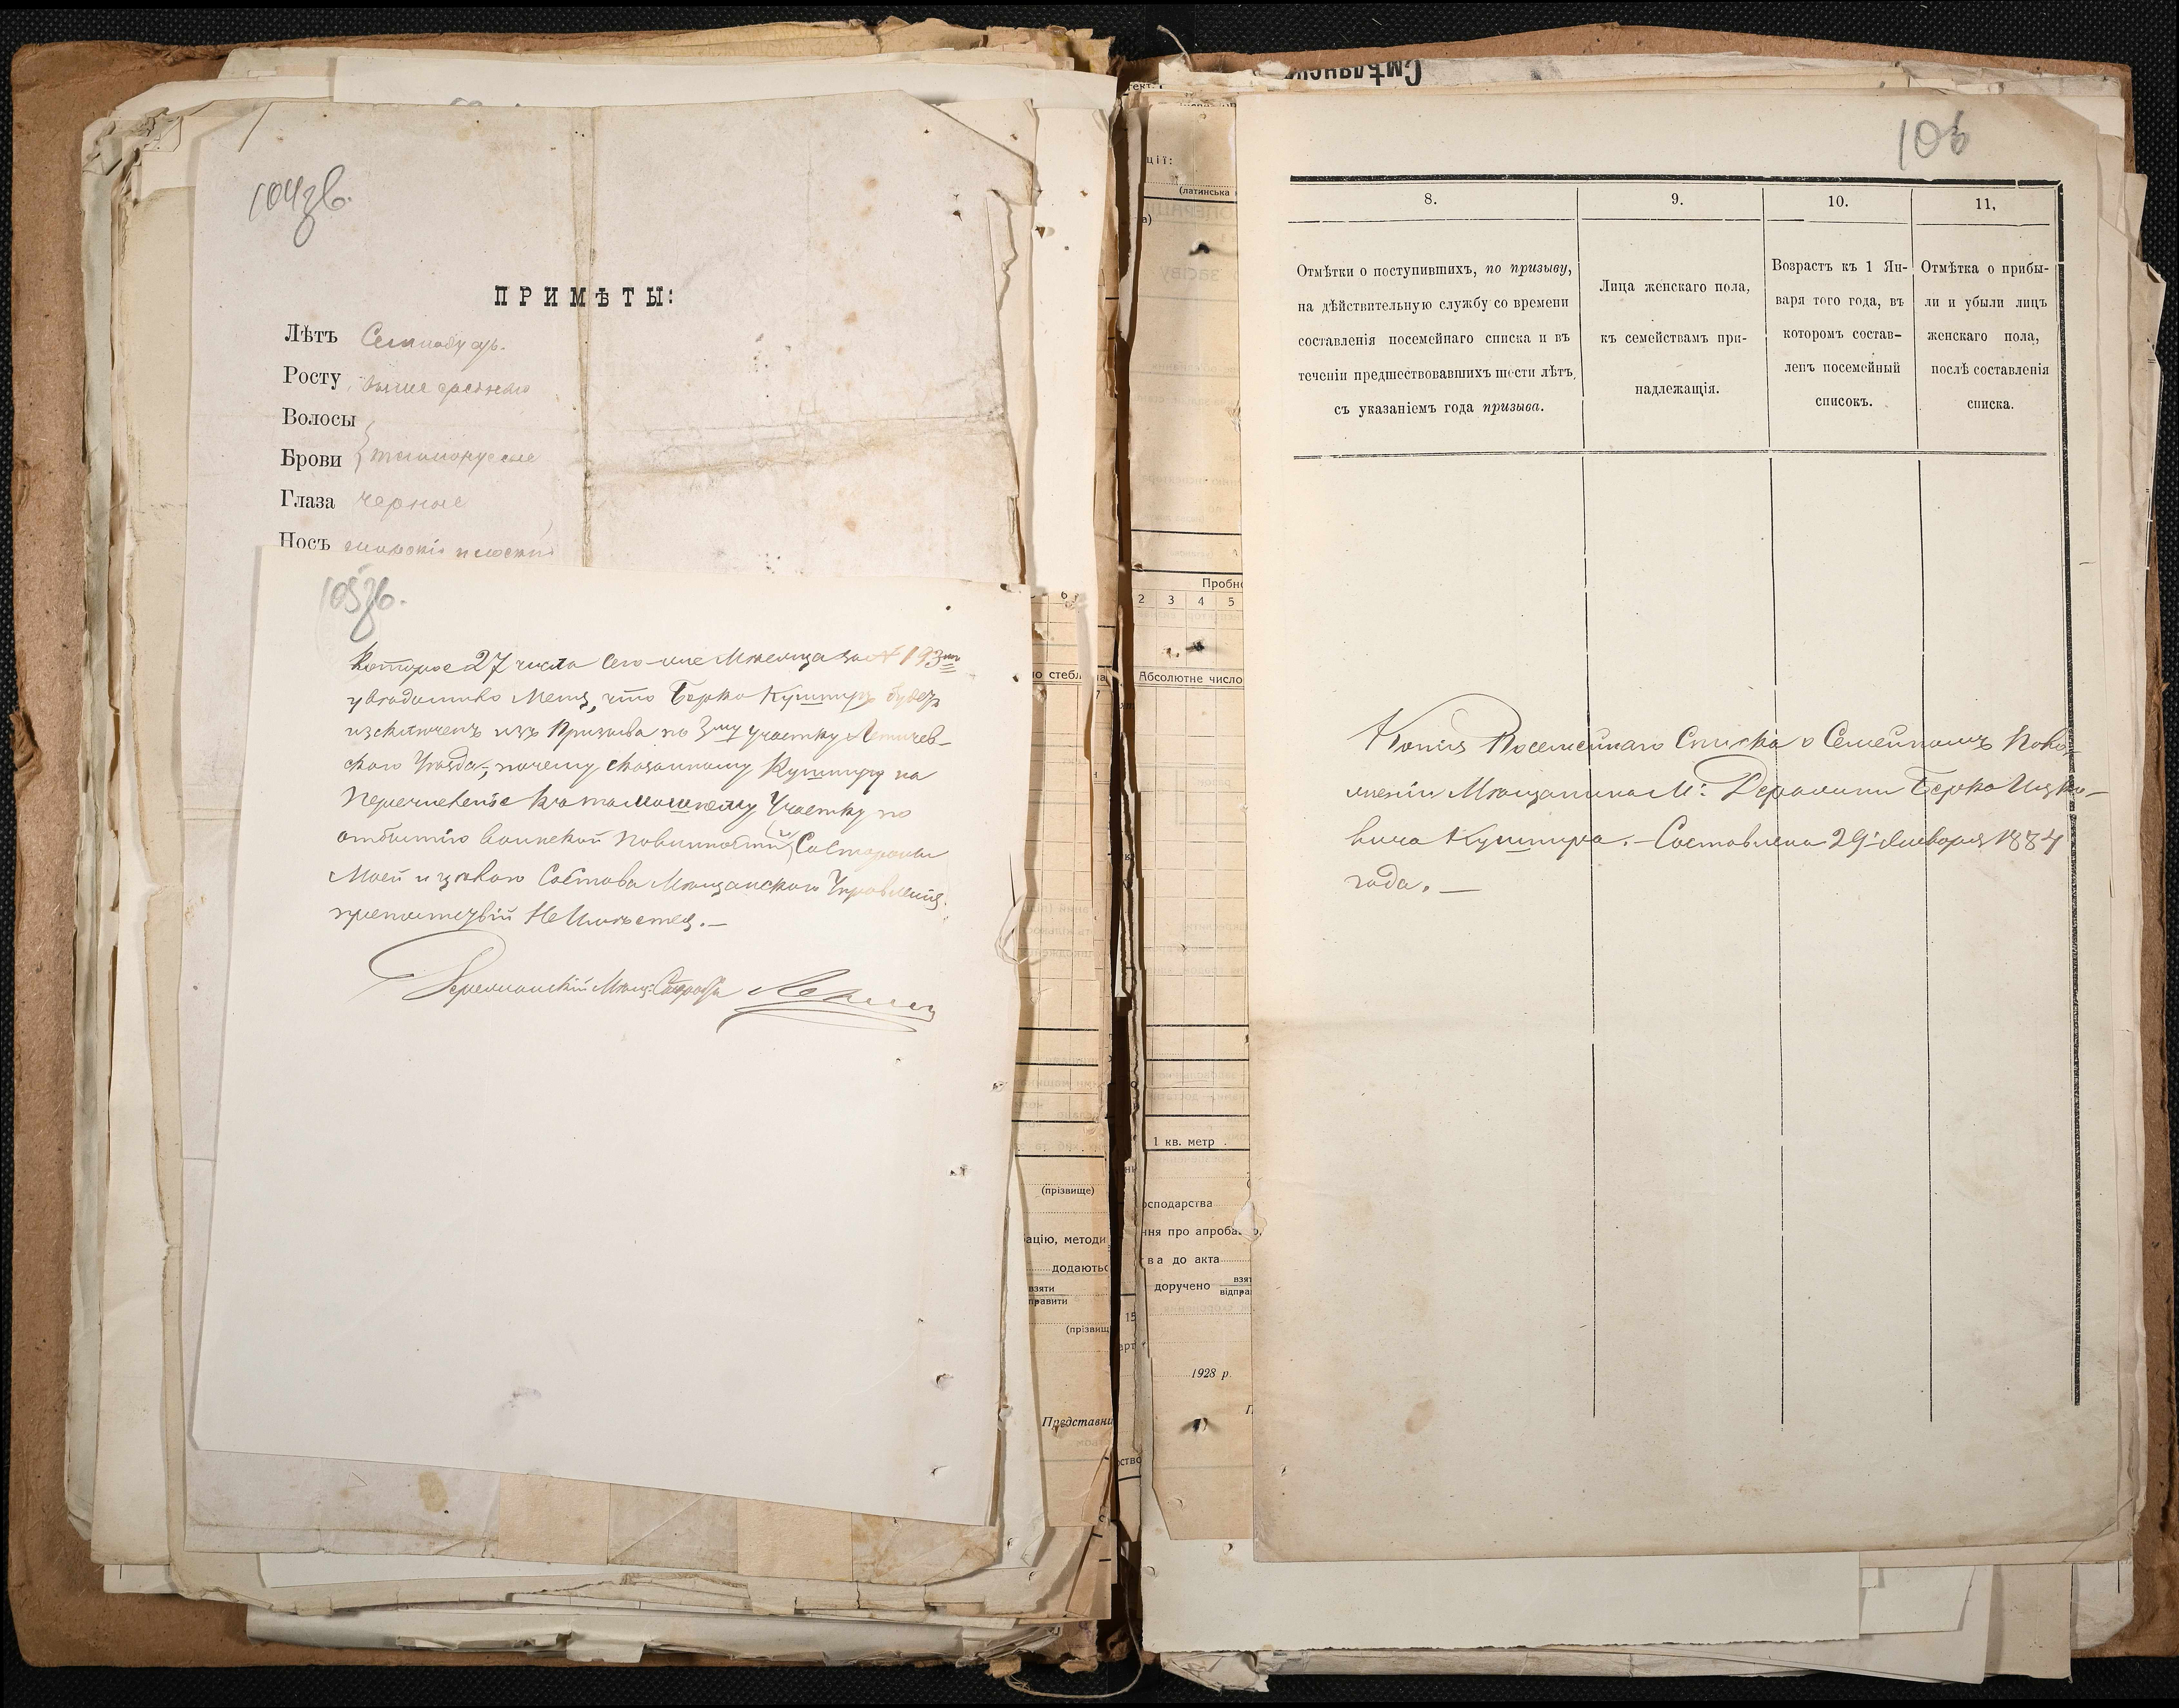 104зв.
ПРИМѢТЫ:
Лѣтъ
Росту выше средняго
Волосы
Брови } темнорусые
Глаза черные
Носъ плоскій
105зв.
Которое 27 числа сего-же Мѣсяца за № 193мъ
увѣдомило Меня, что Берко Кушниръ будетъ
изключенъ изъ Призыва по 3му участку Летичев-
скаго Уѣзда; почему сказанному Кушниру на
Перечисленіе къ Участку по
отбытію воинской повинности, Состороны
Моей и цѣлаго Состава Мѣщанскаго Управленія
препятствій Не Имѣется.—
Деражнянскій Мѣщ: Староста
106
8.
9.
10.
11.
Отмѣтки о поступившихъ, по призыву,
на дѣйствительную службу со времени
составленія посемейнаго списка и въ
теченіи предшествовавшихъ шести лѣтъ,
съ указаніемъ года призыва.
Лица женскаго пола,
къ семействамъ при-
надлежащія.
Возрастъ къ 1 Ян-
варя того года, въ
которомъ состав-
ленъ посемейный
списокъ.
Отмѣтка о прибы-
ли и убыли лицъ
женскаго пола,
послѣ составленія
списка.
Копія Посемейнаго Списка о Семейномъ Поло-
женіи Мѣщанина М: Деражни Берко Ицко-
вича Кушнира.— Составлена 29 Января 1884
года.—
Смѣлянск
ції:
(латинська
Пробн
2 3 4 5
6
о стебл
Абсолютне число
1 кв. метр
(прізвище)
осподарства
ацію, методи
ння про апроба
додаютьс
ва до акта
взяти
правити
доручено
взят
відпра
(прізвищ
1928 р.
Представни